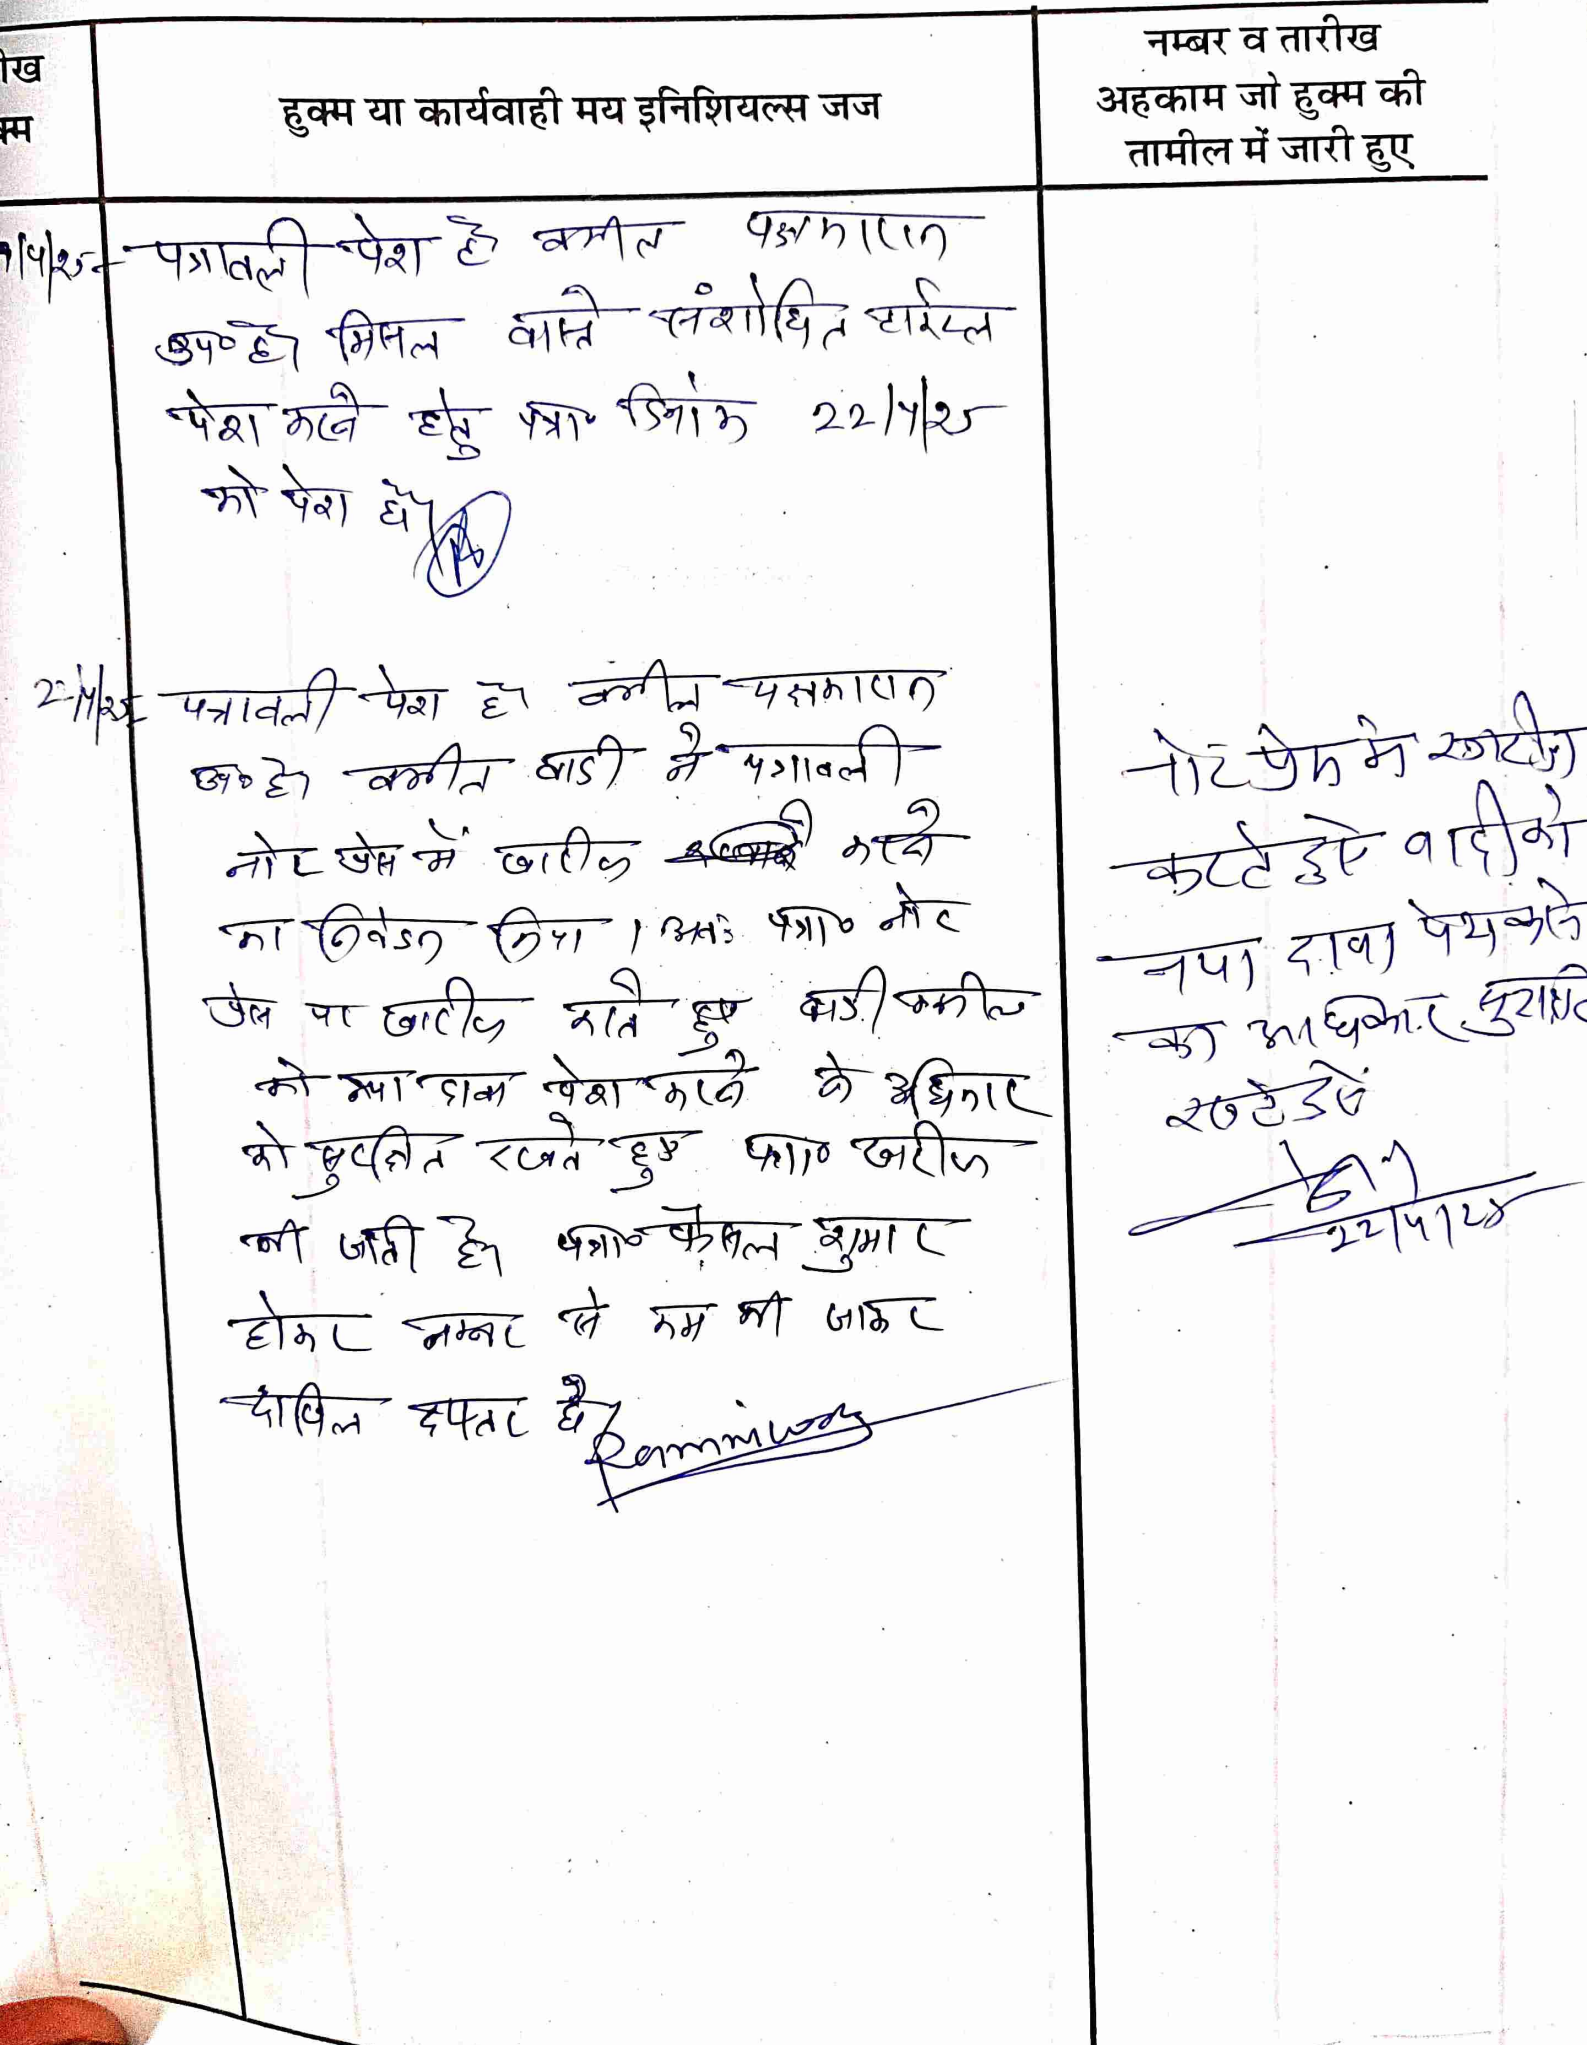 ीख
क्म
हुक्म या कार्यवाही मय इनिशियल्स जज
नम्बर व तारीख
अहकाम जो हुक्म की
तामील में जारी हुए
/4/25- पत्रावली पेश है। वकील पक्षकारान
उप० है। मिसल वास्ते संशोधित टाईटल
पेश करने हेतु पत्रा० दिनांक 22/4/25
को पेश हो।
22/4/25- पत्रावली पेश है। वकील पक्षकारान
उप० है। वकील वादी ने पत्रावली
नोट प्रेस में खारीज करने
का निवेदन किया। अतः पत्रा० नोट
प्रेस पर खारीज करते हुए वादी वकील
को नया दावा पेश करने के अधिकार
को सुरक्षित रखते हुए पत्रा० खारीज
की जाती है। पत्रा० फैसल शुमार
होकर नम्बर से कम की जाकर
दाखिल दफ्तर हो।
Ramniwas
नोट प्रेस मे खारीज
करते हुऐ वादी को
नया दावा पेश करने
का अधिकार सुरक्षित
रखते हुऐ
22/4/25